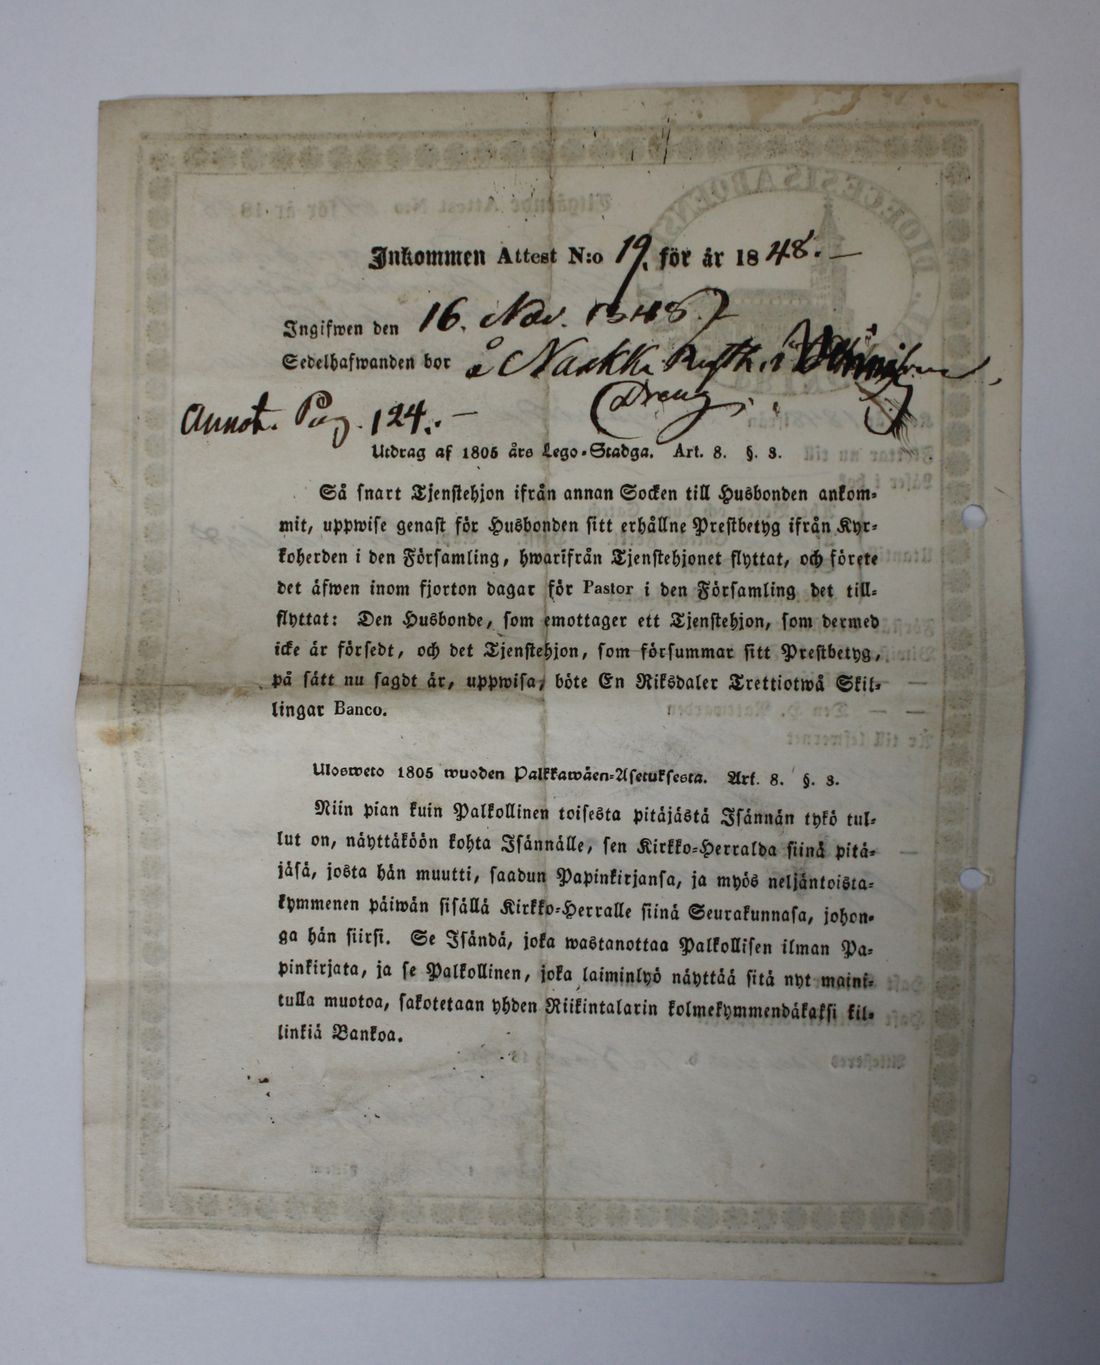 Inkommen Attest N:o 19. för år 1848.
Ingifwen den 16. Nov. 1848
Sedelhafwanden bor å Nackki
Dreng
Annot. Pag. 124.
Utdrag af 1805 års Lego-Stadga. Art. 8. §. 3.
Så snart Tjenstehjon ifrån annan Socken till Husbonden ankom-
mit, uppwise genast för Husbonden sitt erhållne Prestbetyg ifrån Kyr-
koherden i den Församling, hwarifrån Tjenstehjonet flyttat, och förete
det äfwen inom fjorton dagar för Pastor i den Församling det till-
flyttat: Den Husbonde, som emottager ett Tjenstehjon, som dermed
icke är försedt, och det Tjenstehjon, som försummar sitt Prestbetyg,
på sätt nu sagdt är, uppwisa, böte En Riksdaler Trettiotwå Skil-
lingar Banco.
Ulosweto 1805 wuoden Palkkawäen-Asetuksesta. Art. 8. §. 3.
Niin pian kuin Palkollinen toisesta pitäjästä Isännän tykö tul-
lut on, näyttäköön kohta Isännälle, sen Kirkko-Herralda siinä pitä-
jäsä, josta hän muutti, saadun Papinkirjansa, ja myös neljäntoista-
kymmenen päiwän sisällä Kirkko-Herralle siinä Seurakunnasa, johon-
ga hän siirsi. Se Isändä, joka wastanottaa Palkollisen ilman Pa-
pinkirjata, ja se Palkollinen, joka laiminlyö näyttää sitä nyt maini-
tulla muotoa, sakotetaan yhden Riikintalarin kolmekymmendäkaksi kil-
linkiä Bankoa.